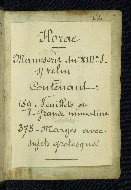 Horae
Manuscrit du XIIIe S.
Contenant:
154 Feuillets et
1 Grande miniature
375 Marges avec
sujets grotesques